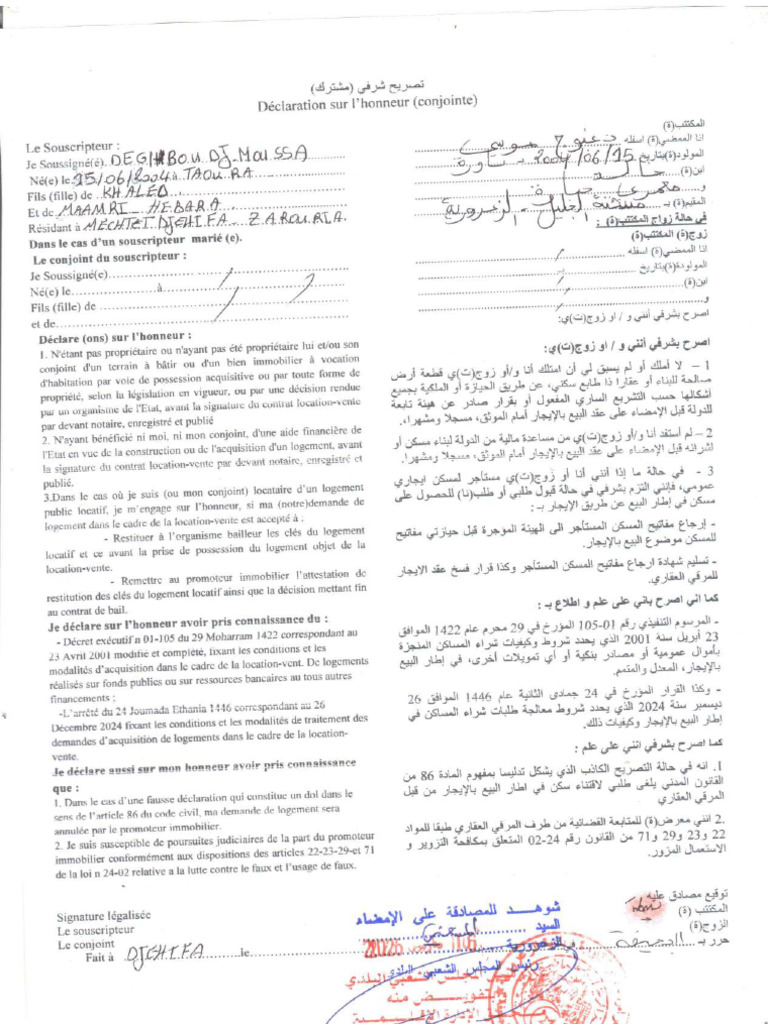 تصريح شرفي (مشترك)
Déclaration sur l'honneur (conjointe)
Le Souscripteur :
Je Soussigné(é). DEGHBOUDJ-MOUSSA
Né(e) le 15/06/2004 à TAOURA
Fils (fille) de KHALED
Et de MAAMRI - HEBARA
Résidant à MECHTET DJEHIFA - ZAROURIA.
Dans le cas d'un souscripteur marié (e).
Le conjoint du souscripteur :
Je Soussigné(e)
Né(e) le à
Fils (fille) de
et de
Déclare (ons) sur l'honneur :
1. N'étant pas propriétaire ou n'ayant pas été propriétaire lui et/ou son
conjoint d'un terrain à bâtir ou d'un bien immobilier à vocation
d'habitation par voie de possession acquisitive ou par toute forme de
propriété, selon la législation en vigueur, ou par une décision rendue
par un organisme de l'Etat, avant la signature du contrat location-vente
par devant notaire, enregistré et publié
2. N'ayant bénéficié ni moi, ni mon conjoint, d'une aide financière de
l'Etat en vue de la construction ou de l'acquisition d'un logement, avant
la signature du contrat location-vente par devant notaire, enregistré et
publié.
3.Dans le cas où je suis (ou mon conjoint) locataire d'un logement
public locatif, je m'engage sur l'honneur, si ma (notre)demande de
logement dans le cadre de la location-vente est accepté à :
- Restituer à l'organisme bailleur les clés du logement
locatif et ce avant la prise de possession du logement objet de la
location-vente.
- Remettre au promoteur immobilier l'attestation de
restitution des clés du logement locatif ainsi que la décision mettant fin
au contrat de bail.
Je déclare sur l'honneur avoir pris connaissance du :
- Décret exécutif n 01-105 du 29 Moharram 1422 correspondant au
23 Avril 2001 modifié et complété, fixant les conditions et les
modalités d'acquisition dans le cadre de la location-vent. De logements
réalisés sur fonds publics ou sur ressources bancaires au tous autres
financements :
-L'arrêté du 24 Joumada Ethania 1446 correspondant au 26
Décembre 2024 fixant les conditions et les modalités de traitement des
demandes d'acquisition de logements dans le cadre de la location-
vente.
Je déclare aussi sur mon honneur avoir pris connaissance
que :
1. Dans le cas d'une fausse déclaration qui constitue un dol dans le
sens de l'article 86 du code civil, ma demande de logement sera
annulée par le promoteur immobilier.
2. Je suis susceptible de poursuites judiciaires de la part du promoteur
immobilier conformément aux dispositions des articles 22-23-29-et 71
de la loi n 24-02 relative a la lutte contre le faux et l'usage de faux.
Signature légalisée
Le souscripteur
Le conjoint
Fait à DJEHIFA le
المكتتب(ة)
انا الممضي(ة) اسفله دغبوج موسى
المولود(ة)بتاريخ 2004/06/15 - تاورة
ابن(ة) خالد
و معمري
المقيم(ة) بـ مشتة - الزعرورية
في حالة زواج المكتتب(ة) :
زوج(ة) المكتتب(ة)
انا الممضي(ة) اسفله
المولودة(ة)بتاريخ
ابن(ة)
و
اصرح بشرفي أنني و / او زوج(ت)ي:
اصرح بشرفي أنني و / او زوج(ت)ي:
1 – لا أملك أو لم يسبق لي أن امتلك أنا و/أو زوج(ت)ي قطعة أرض
صالحة للبناء أو عقارا ذا طابع سكني، عن طريق الحيازة أو الملكية بجميع
أشكالها حسب التشريع الساري المفعول أو بقرار صادر عن هيئة تابعة
للدولة قبل الإمضاء على عقد البيع بالإيجار أمام الموثق، مسجلا ومشهرا.
2 – لم أستفد أنا و/أو زوج(ت)ي من مساعدة مالية من الدولة لبناء مسكن أو
لشرائه قبل الإمضاء على عقد البيع بالإيجار أمام الموثق، مسجلا ومشهرا.
3 - في حالة ما إذا أنني أنا أو زوج(ت)ي مستأجر لمسكن ايجاري
عمومي، فإنني التزم بشرفي في حالة قبول طلبي أو طلب(نا) للحصول على
مسكن في إطار البيع عن طريق الإيجار بـ :
- إرجاع مفاتيح المسكن المستأجر الى الهيئة المؤجرة قبل حيازتي مفاتيح
للمسكن موضوع البيع بالإيجار.
- تسليم شهادة ارجاع مفاتيح المسكن المستأجر وكذا قرار فسخ عقد الايجار
للمرقي العقاري.
كما اني اصرح باني على علم و اطلاع بـ :
- المرسوم التنفيذي رقم 01-105 المؤرخ في 29 محرم عام 1422 الموافق
23 أبريل سنة 2001 الذي يحدد شروط وكيفيات شراء المساكن المنجزة
بأموال عمومية أو مصادر بنكية أو أي تمويلات أخرى، في إطار البيع
بالإيجار، المعدل والمتمم.
- وكذا القرار المؤرخ في 24 جمادى الثانية عام 1446 الموافق 26
ديسمبر سنة 2024 الذي يحدد شروط معالجة طلبات شراء المساكن في
إطار البيع بالإيجار وكيفيات ذلك.
كما اصرح بشرفي انني على علم :
1. انه في حالة التصريح الكاذب الذي يشكل تدليسا بمفهوم المادة 86 من
القانون المدني يلغى طلبي لاقتناء سكن في اطار البيع بالإيجار من قبل
المرقي العقاري
2. انني معرض(ة) للمتابعة القضائية من طرف المرقي العقاري طبقا للمواد
22 و23 و29 و71 من القانون رقم 24-02 المتعلق بمكافحة التزوير و
الاستعمال المزور.
توقيع مصادق عليه
المكتتب (ة)
الزوج(ة)
حرر بـ في
شوهد للمصادقة على الإمضاء
السيد
الزعرورية
رئيس المجلس الشعبي البلدي